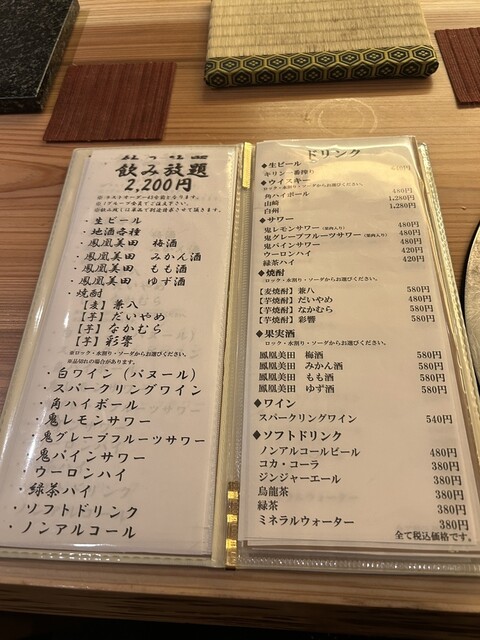 飲み放題
2,200円
・生ビール
・地酒各種
・鳳凰美田 梅酒
・鳳凰美田 みかん酒
・鳳凰美田 もも酒
・鳳凰美田 ゆず酒
・焼酎
【麦】兼八
【芋】だいやめ
【芋】なかむら
【芋】彩響
※ロック・水割り・ソーダからお選びください。
※品切れの場合があります。
・白ワイン（バヌール）
・スパークリングワイン
・角ハイボール
・鬼レモンサワー
・鬼グレープフルーツサワー
・鬼パインサワー
・ウーロンハイ
・緑茶ハイ
・ソフトドリンク
・ノンアルコール
ドリンク
◆生ビール
キリン一番搾り
◆ウイスキー
ロック・水割り・ソーダからお選びください。
角ハイボール 480円
山崎 1,280円
白州 1,280円
◆サワー
鬼レモンサワー（果肉入り） 480円
鬼グレープフルーツサワー（果肉入り） 480円
鬼パインサワー 480円
ウーロンハイ 420円
緑茶ハイ 420円
◆焼酎
ロック・水割り・ソーダからお選びください。
【麦焼酎】兼八 580円
【芋焼酎】だいやめ 480円
【芋焼酎】なかむら 580円
【芋焼酎】彩響 580円
◆果実酒
ロック・水割り・ソーダからお選びください。
鳳凰美田 梅酒 580円
鳳凰美田 みかん酒 580円
鳳凰美田 もも酒 580円
鳳凰美田 ゆず酒 580円
◆ワイン
スパークリングワイン 540円
◆ソフトドリンク
ノンアルコールビール 480円
コカ・コーラ 380円
ジンジャーエール 380円
烏龍茶 380円
緑茶 380円
ミネラルウォーター 380円
全て税込価格です。